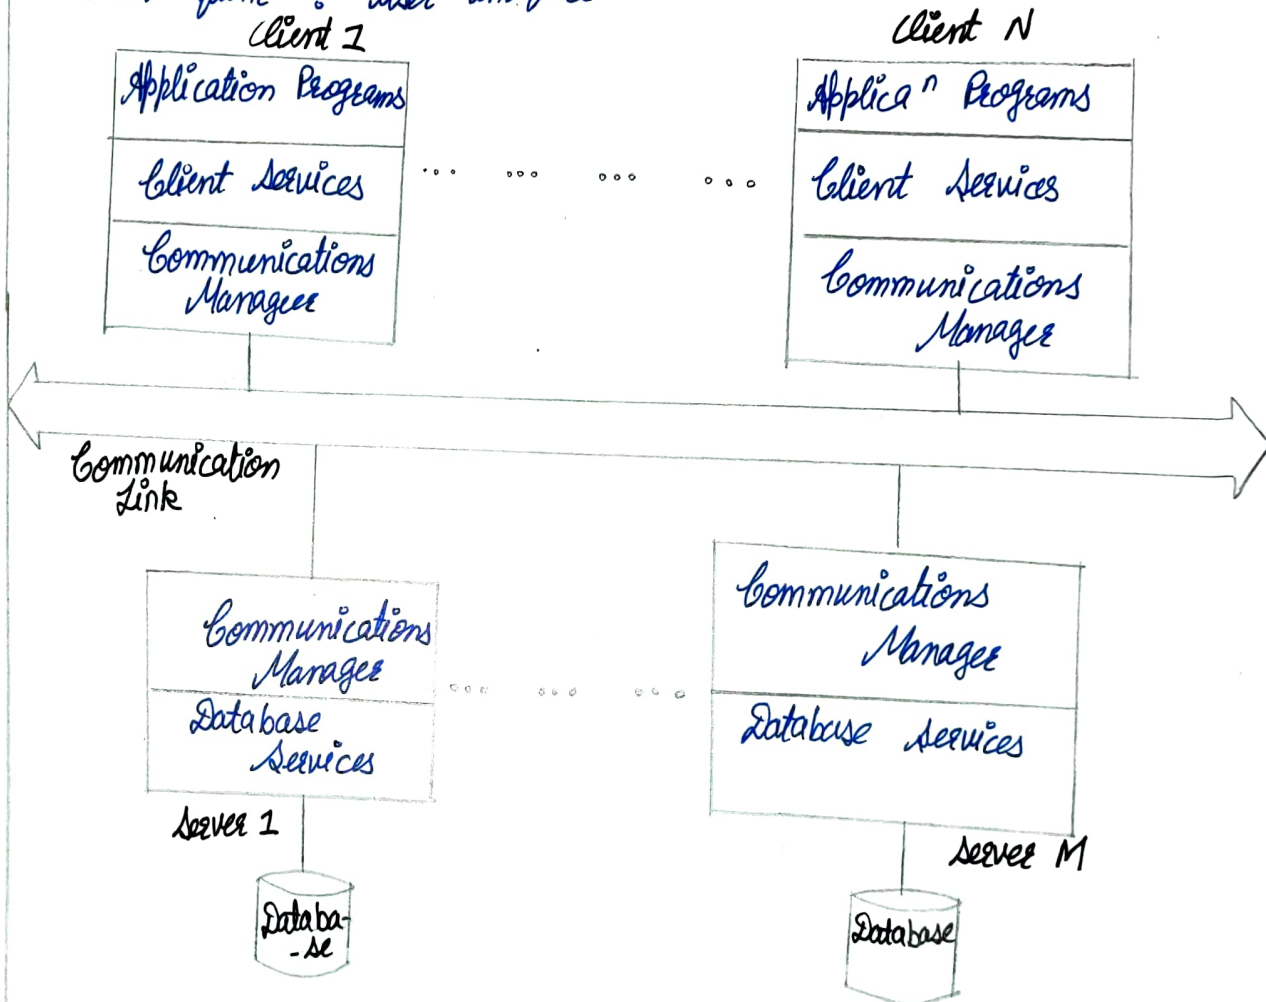 user
Client 1
Client N
Application Programs
Client Services
Communications
Manager
Applicaⁿ Programs
Client Services
Communications
Manager
Communication
Link
Communications
Manager
Database
Services
Server 1
Databa-
-se
Communications
Manager
Database Services
Server M
Database